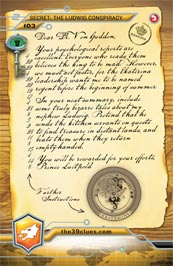 SECRET: THE LUDWIG CONSPIRACY
103
3
Dear Dr. Von Gudden,
Your psychological reports are
excellent. Everyone who reads them
believes the king to be mad. However,
we must act faster, for the Ekaterina
leadership wants me to be named
regent before the beginning of summer.
In your next summary, include
some truly bizarre tales about my
nephew Ludwig. Pretend that he
sends the kitchen servants on quests
to find treasure in distant lands, and
hates them when they return
empty-handed.
You will be rewarded for your efforts,
Prince Luitpold
Further
Instructions
the39clues.com